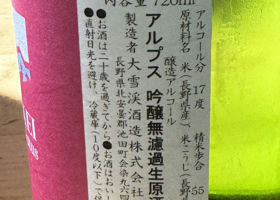 内容量 720ml
アルコール分 17度 精米歩合 55
原材料名 米(長野県産)米こうじ(長野
醸造アルコール
アルプス 吟醸無濾過生原酒
製造者 大雪渓酒造株式会社
長野県北安曇郡池田町会染九六
●お酒は二十歳を過ぎてから ●お酒はおいし
●直射日光を避け、冷蔵庫(10度以下)で保